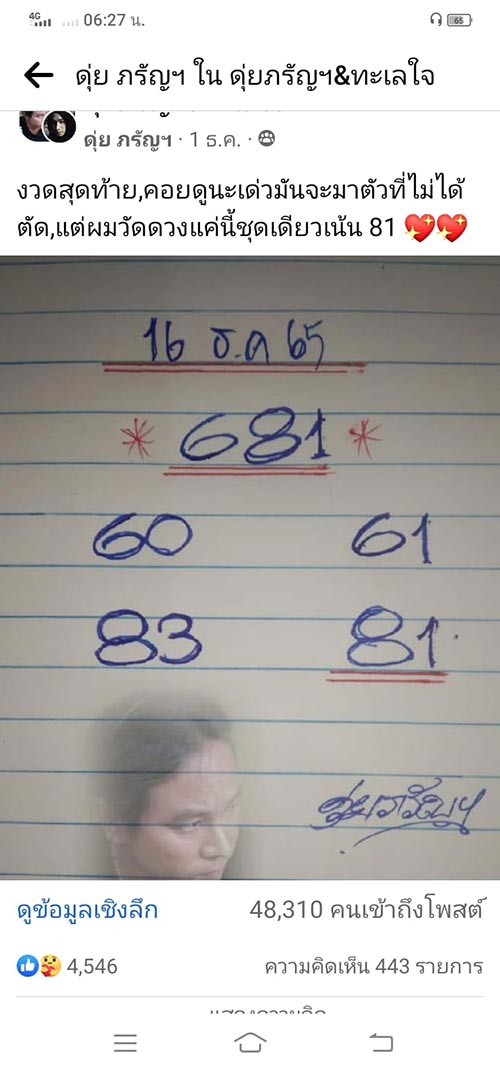 4G 06:27 น. 65
ดุ่ย ภรัญฯ ใน ดุ่ยภรัญฯ&ทะเลใจ
ดุ่ย ภรัญฯ · 1 ธ.ค. ·
งวดสุดท้าย,คอยดูนะเด่วมันจะมาตัวที่ไม่ได้
ตัด,แต่ผมวัดดวงแค่นี้ชุดเดียวเน้น 81 💖💖
16 ธ.ค 65
* 681 *
60 61
83 81
ดุ่ยภรัญฯ
ดูข้อมูลเชิงลึก 48,310 คนเข้าถึงโพสต์
4,546 ความคิดเห็น 443 รายการ